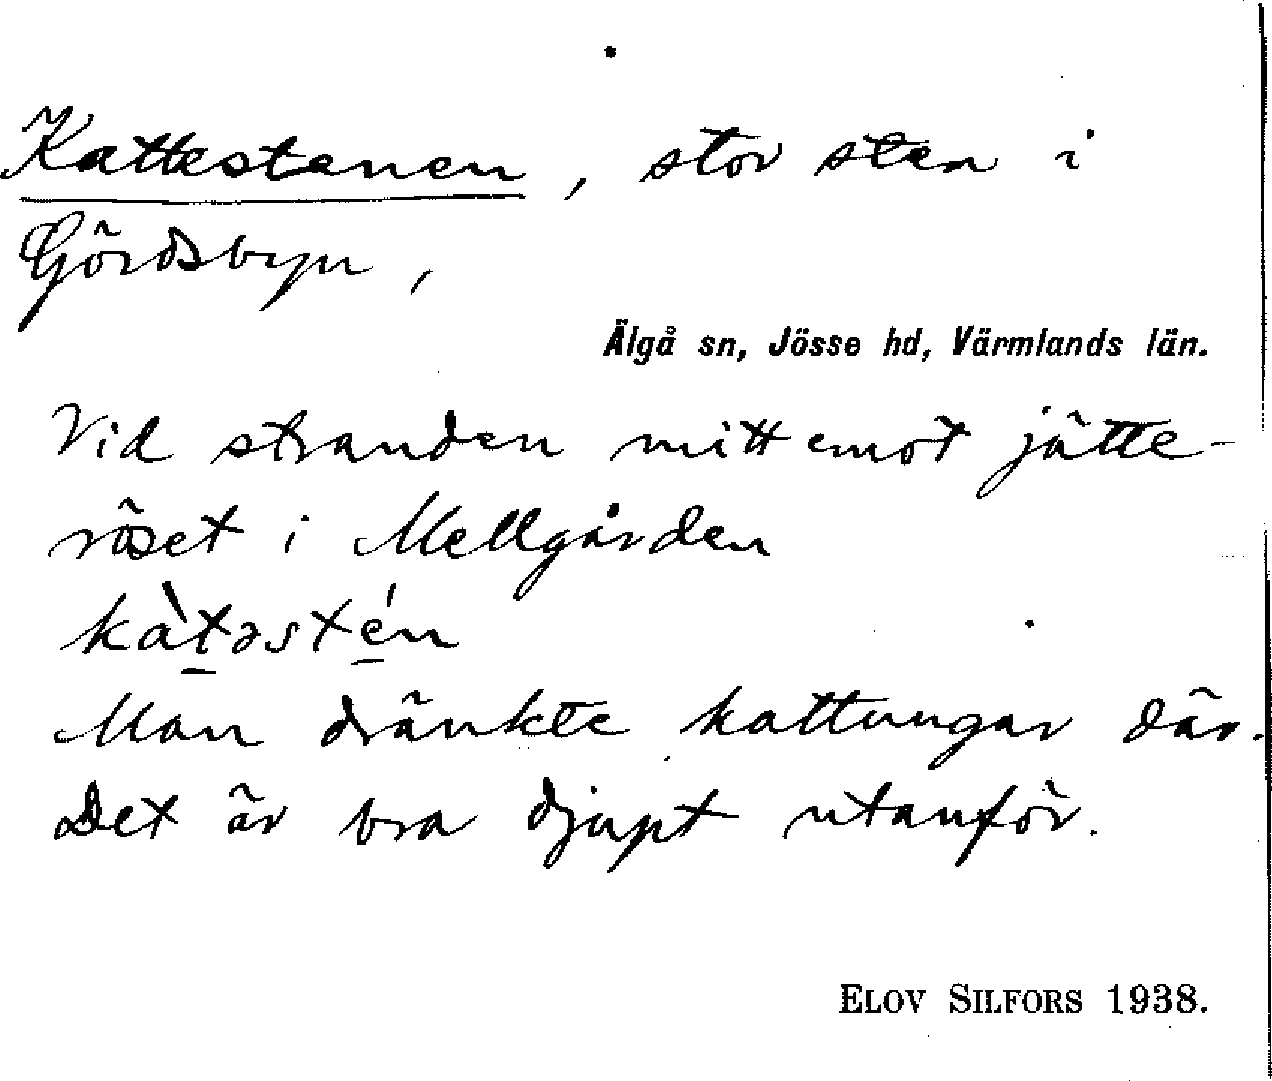 Kattestenen, stor sten i
Gördsbyn,
Älgå sn, Jösse hd, Värmlands län.
Vid stranden mittemot jätte-
röset i Mellgården
kàt̲əsté̲n
Man dränkte kattungar där.
Det är bra djupt utanför.
ELOV SILFORS 1938.